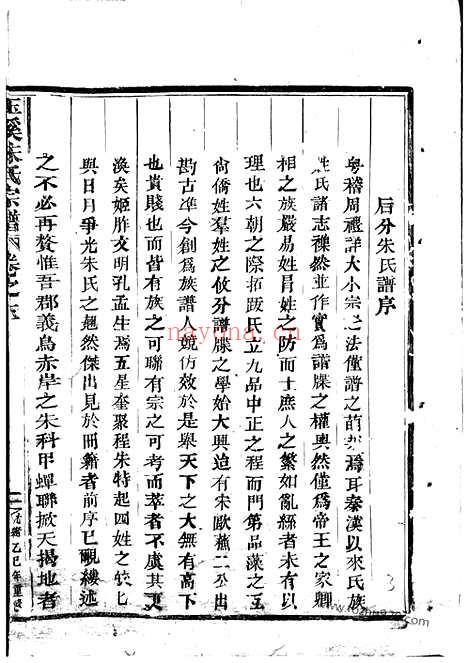 后分朱氏譜序
粵稽周禮詳大小宗之法僅譜之前爲耳秦漢以來氏族
姓氏諸志襍然並作實爲譜牒之權輿然僅爲帝王之家卿
相之族嚴易姓冒姓之防而士庶人之繁如亂絲者未有以
理也六朝之際拓跋氏立九品中正之程而門第品藻之互
尙僑姓羣姓之攸分譜牒之學始大興迨有宋歐蘇二公出
斟古準今創爲族譜人競仿效於是舉天下之大無有高下
也貴賤也而皆有族之可聯有宗之可考而萃者不虞其更
渙矣姬胙文明孔孟生焉五星奎聚程朱特起四姓之較
與日月爭光朱氏之翹然傑出見於冊籍者前序已覼縷述
之不必再贅惟吾郡義烏赤岸之朱科甲蟬聯掀天揭地者
玉溪朱氏宗譜 卷之
光緒乙巳年重修
3
nayona.cn